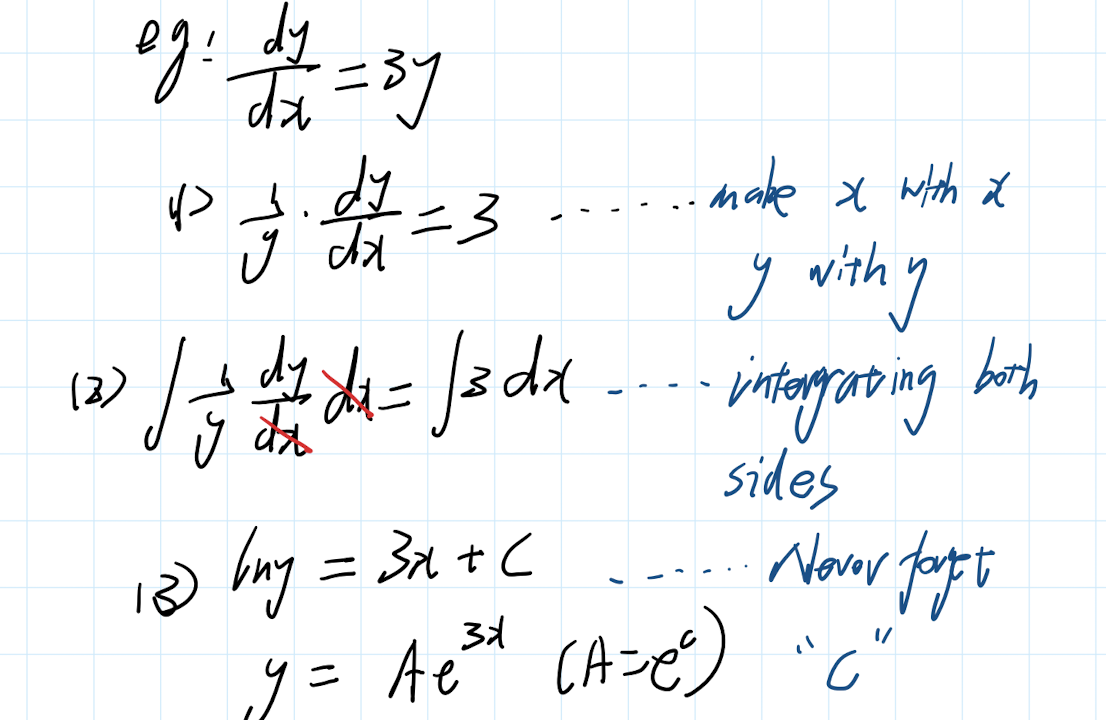 eg: dy/dx = 3y
(1) 1/y · dy/dx = 3 ······· make x with x
y with y
(2) ∫ 1/y dy/dx dx = ∫ 3 dx ····· intergrating both
sides
(3) lny = 3x + C ······· Never forget
y = Ae^3x (A = e^c) "C"